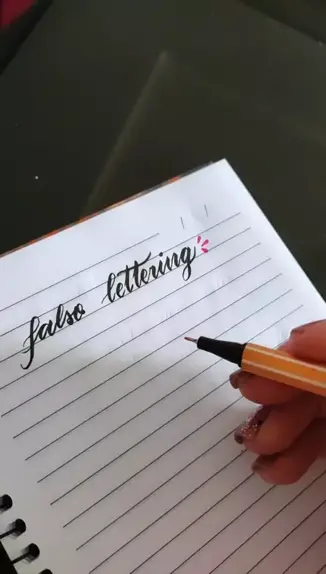 falso lettering